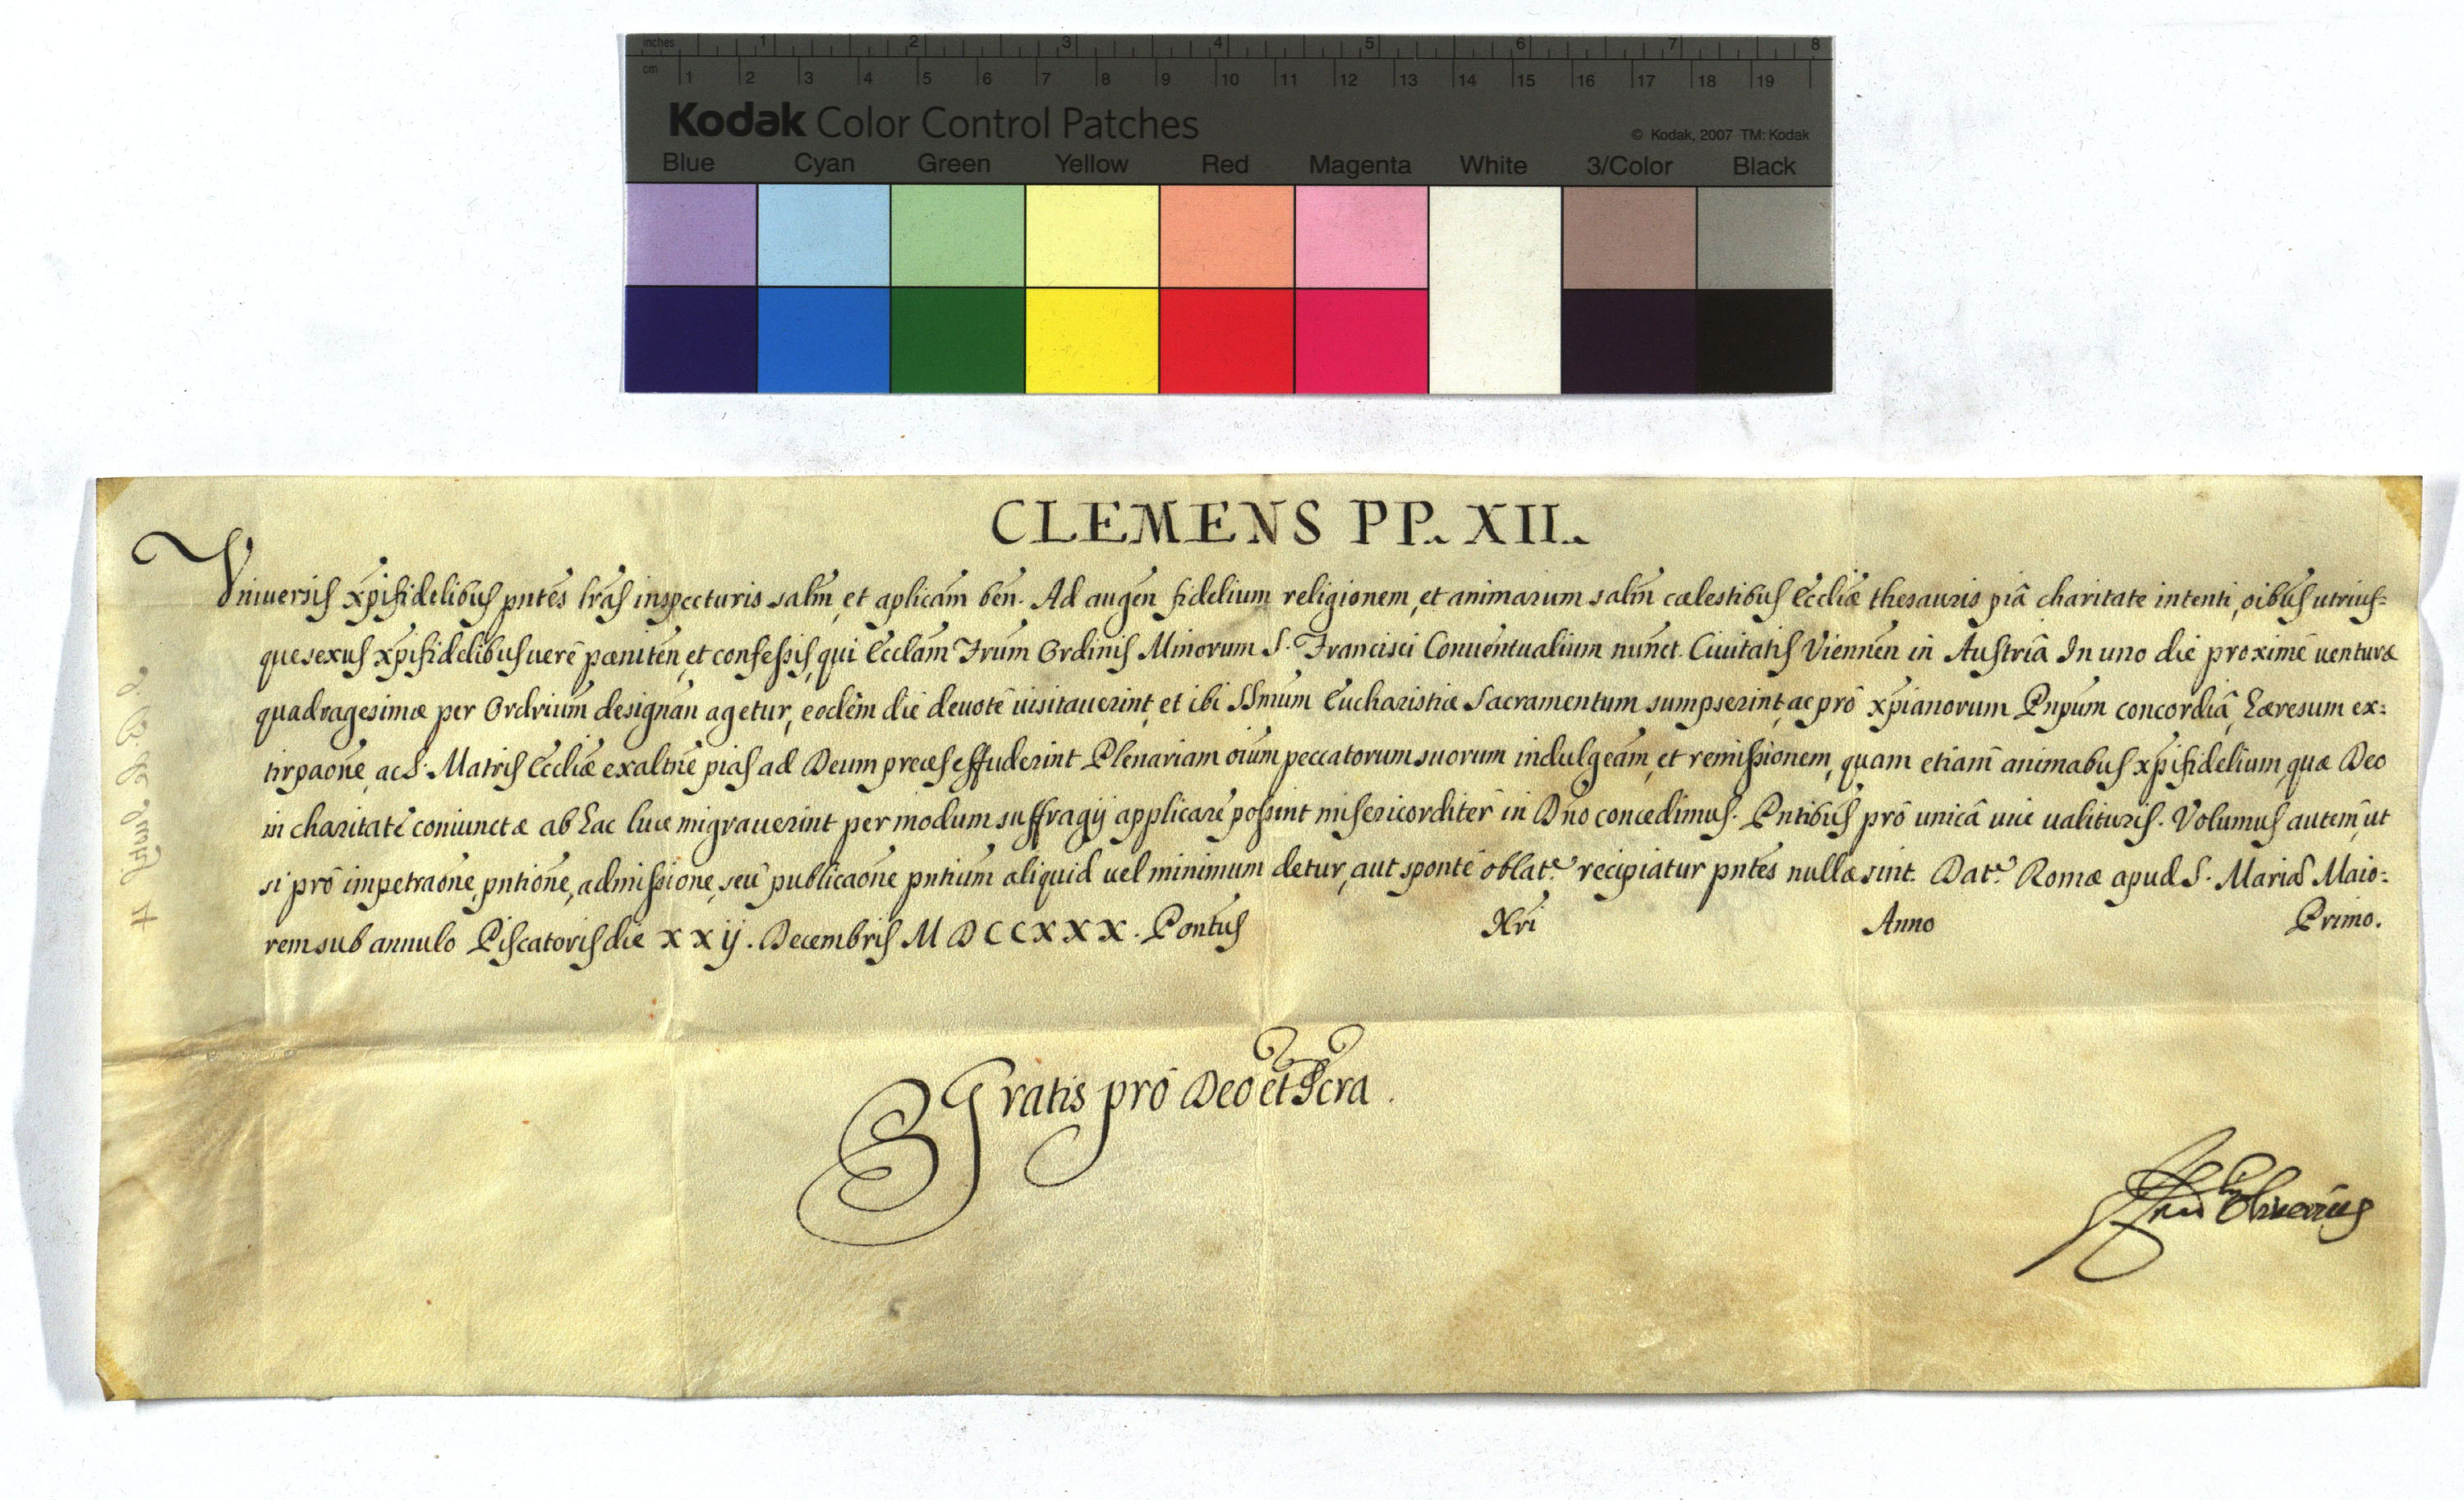 inches 1 2 3 4 5 6 7 8
cm 1 2 3 4 5 6 7 8 9 10 11 12 13 14 15 16 17 18 19
Kodak Color Control Patches
© Kodak, 2007 TM: Kodak
Blue Cyan Green Yellow Red Magenta White 3/Color Black
CLEMENS PP. XII.
Vniuersis xp̄ifidelibus pn̄tes lr̄as inspecturis salm̄, et aplicām ben̄. Ad augen̄ fidelium religionem, et animarum salm̄ cælestibus Eccliæ thesauris piâ charitate intenti, oībus utrius-
que sexus xp̄ifidelibus uerè pæniten̄, et confessis, qui Ecclām Frum̄ Ordinis Minorum S. Francisci Conuentualium nun̄ct. Ciuitatis Viennen̄ in Austriâ In uno die proximè venturæ
quadragesimæ per Ordrium̄ designan̄ agetur, eodem̄ die deuotè uisitauerint, et ibi SSmūm Eucharistiæ Sacramentum sumpserint, ac prò xp̄ianorum Pnpūm concordiâ, hæresum ex:
tirpaōne, ac S. Matris Eccliæ exaltnē pias ad Deum preces effuderint Plenariam oīum peccatorum suorum indulgeām, et remissionem, quam etiam̄ animabus xp̄ifidelium, quæ Deo
in charitatè coniunctæ ab hac luce migrauerint per modum suffragij applicarè possint misericorditer̄ in Dn̄o concedimus. Pn̄tibus prò unicâ uice ualituris. Volumus autem̄, ut
si prò impetraōne, pn̄tiōne, admissione, seù publicaōne pn̄tium aliquid uel minimum detur, aut spontè oblat.ͤ recipiatur pn̄tes nullæ sint. Dat.ͤ Romæ apud S. Mariā Maio:
rem sub annulo Piscatoris die xxij. Decembris MDCCXXX. Pontus Nri Anno Primo.
Gratis prò Deo et Scra.
Oliuerius